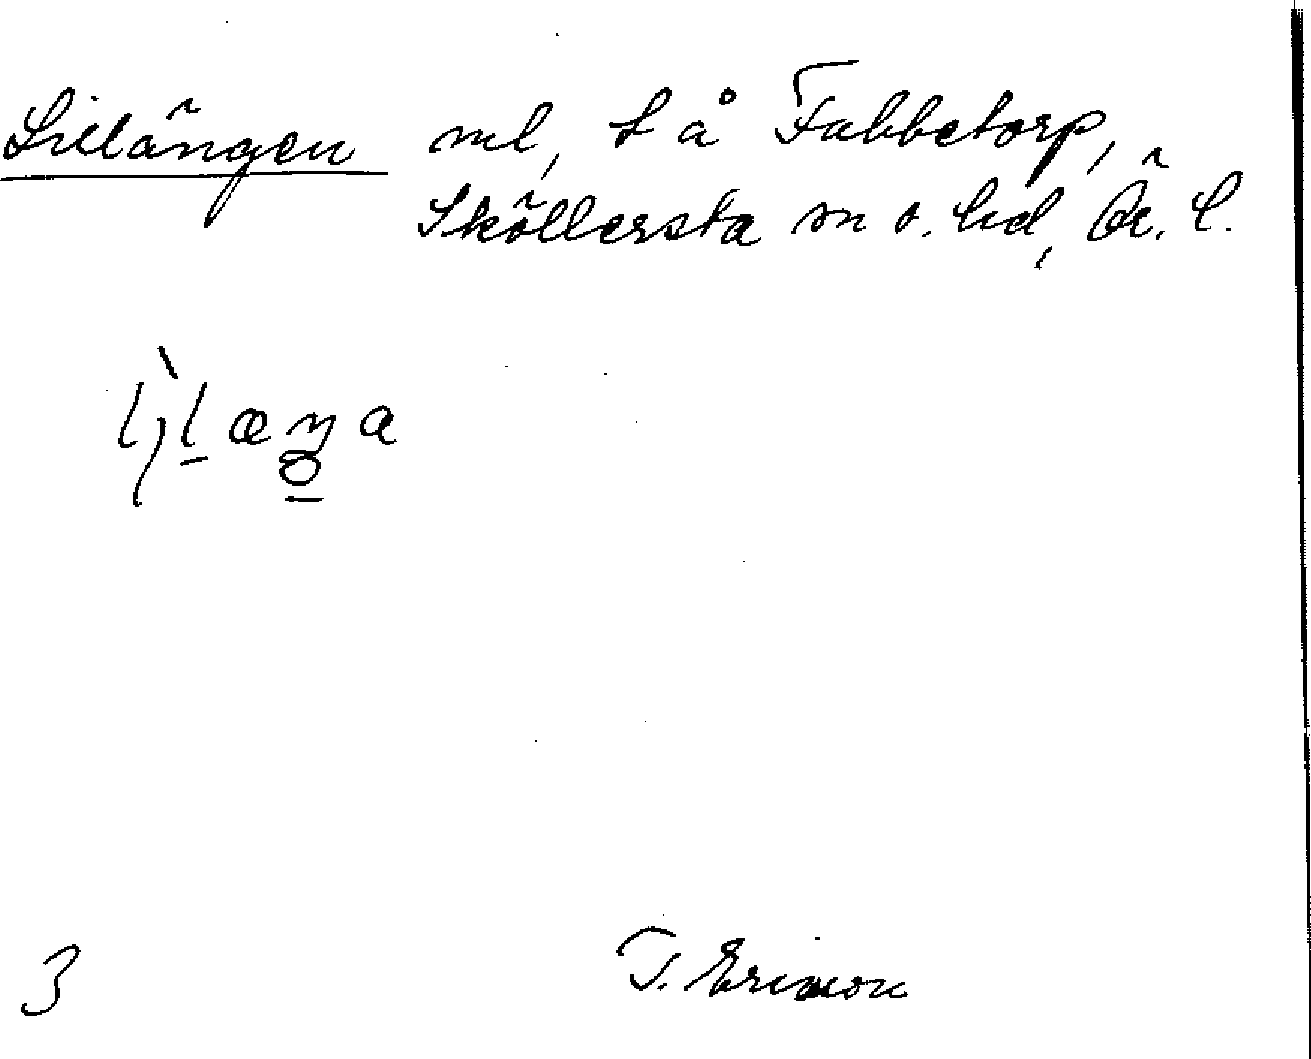 Lillängen ml, t å Fabbetorp,
Sköllersta sn o. hd, Ör. l.
3 T. Ericson